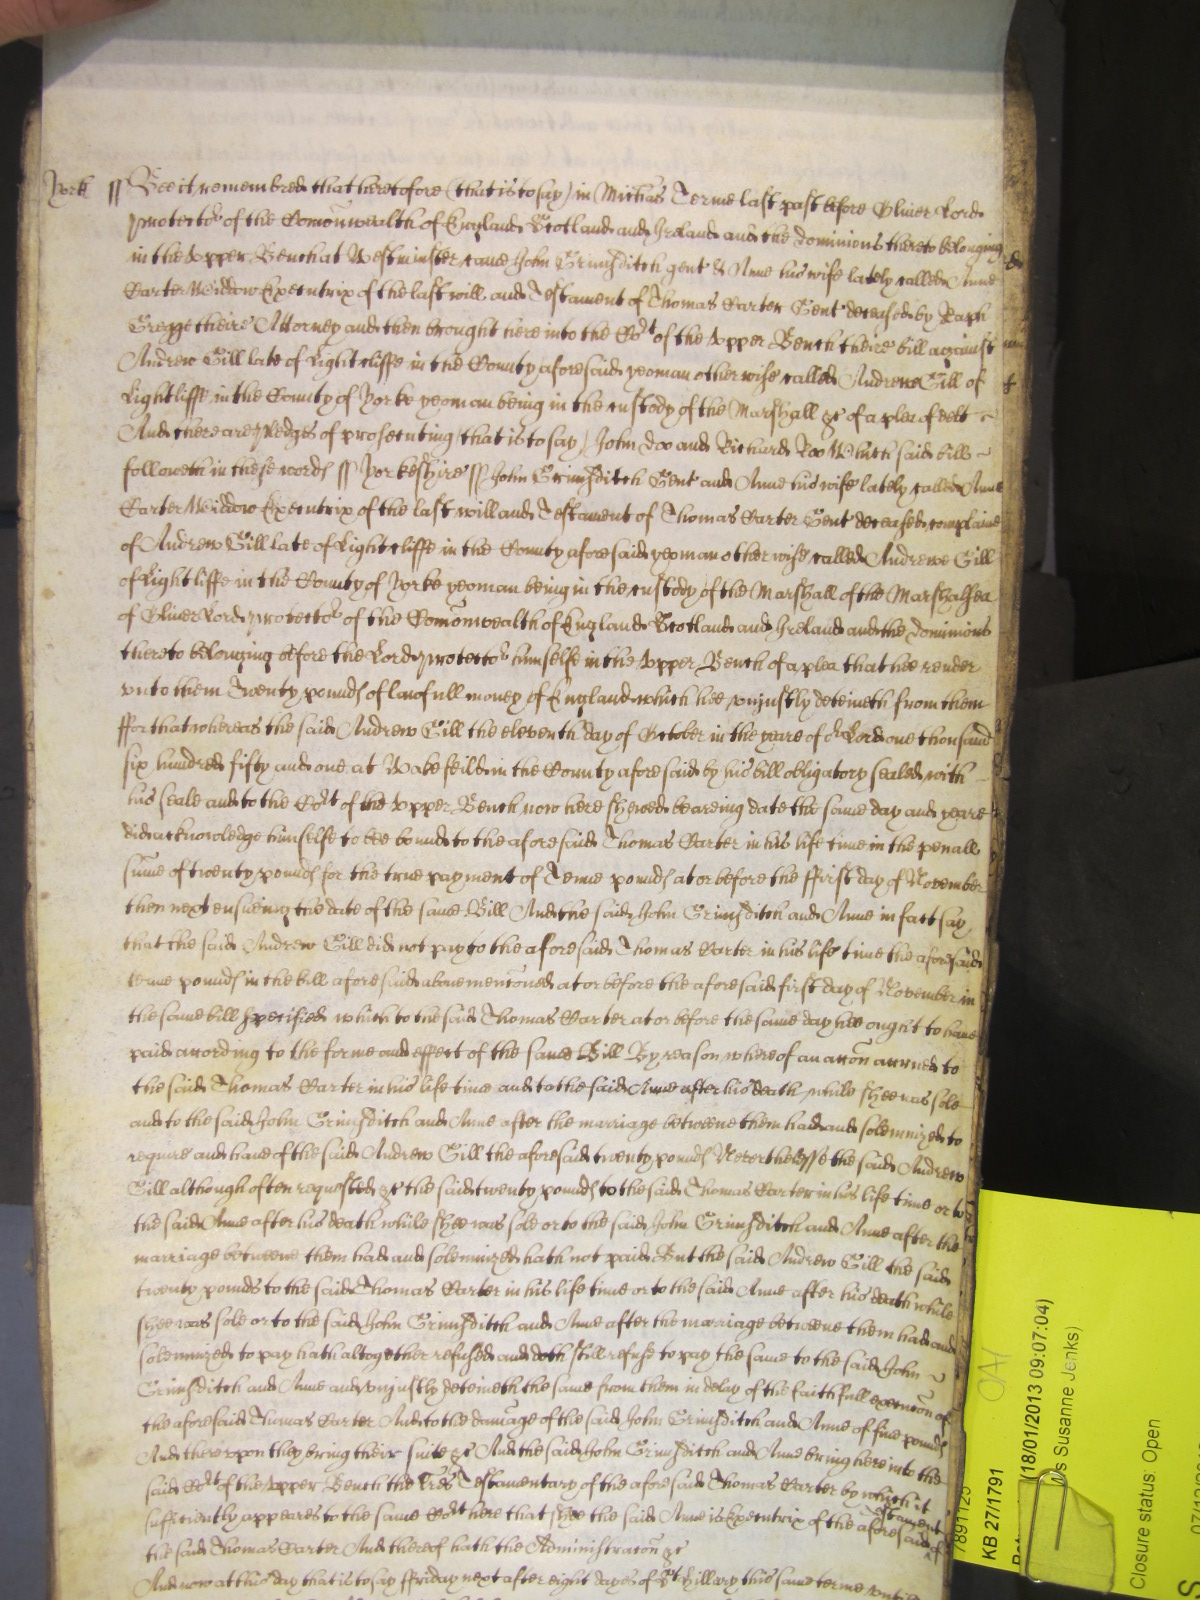 York ∬ Bee it remembred that heretofore (that is to say) in Mich̄as Terme last past before Oliver Lord
protector of the Comōnwealth of England Scotland and Ireland and the dominions thereto belonging
in the upper Bench at Westminster came John Grimsditch gent & Anne his wife lately called Anne
Carter Widdow Executrix of the last will and Testament of Thomas Carter Gent deceased by Raph
Gregge theire Attorney and then brought here into the Cort of the upper Bench theire bill against
Andrew Gill late of Lightcliffe in the County aforesaid yeoman otherwise called Andrewe Gill of
Lightcliffe in the County of Yorke yeoman being in the custody of the Marshall &c of a plea of debt
And there are pledges of prosecuting (that is to say) John Doo and Richard Roo Which said bill
followeth in these words ∬ Yorkeshire ∬ John Grimsditch Gent and Anne his wife lately called Anne
Carter Widdow Executrix of the last will and Testament of Thomas Carter Gent deceased complaine
of Andrew Gill late of Lightcliffe in the County aforesaid yeoman otherwise called Andrewe Gill
of Lightcliffe in the County of Yorke yeoman being in the custody of the Marshall of the Marshalsea
of Oliver Lord protector of the Comōnwealth of England Scotland and Ireland and the dominions
thereto belonging before the Lord protector himselfe in the upper Bench of a plea that hee render
unto them Twenty pounds of lawfull money of England which hee unjustly deteineth from them
ffor that whereas the said Andrew Gill the eleventh day of October in the yeare of or Lord one thousand
six hundred fifty and one at Wakefeild in the County aforesaid by his bill obligatory sealed with
his seale and to the Cort of the upper Bench now here shewed beareing date the same day and yeare
did acknowledge himselfe to bee bound to the aforesaid Thomas Carter in his life time in the penall
sūme of twenty pounds for the true payment of Tenne pounds at or before the ffirst day of November
then next ensueing the date of the same Bill And the said John Grimsditch and Anne in fact say
that the said Andrew Gill did not pay to the aforesaid Thomas Carter in his life time the aforesaid
tenne pounds in the bill aforesaid above mencōned at or before the aforesaid first day of November in
the same bill specified which to the said Thomas Carter at or before the same day hee ought to have
paid according to the forme and effect of the same Bill By reason whereof an accōn accrued to
the said Thomas Carter in his life time and to the said Anne after his death while shee was sole
and to the said John Grimsditch and Anne after the marriage betweene them had and solemnized to
require and have of the said Andrew Gill the aforesaid twenty pounds Neverthelesse the said Andrew
Gill although often requested &c the said twenty pounds to the said Thomas Carter in his life time or to
the said Anne after his death while shee was sole or to the said John Grimsditch and Anne after the
marriage betweene them had and solemnized hath not paid But the said Andrew Gill the said
twenty pounds to the said Thomas Carter in his life time or to the said Anne after his death while
shee was sole or to the said John Grimsditch and Anne after the marriage betweene them had and
solemnized to pay hath altogether refused and doth still refuse to pay the same to the said John
Grimsditch and Anne and unjustly deteineth the same from them in delay of the faithfull execucōn of
the aforesaid Thomas Carter And to the damage of the said John Grimsditch and Anne of five pounds
And thereupon they bring theire suite &c And the said John Grimsditch and Anne bring here into the
said Cort of the upper Bench the L̄res Testamentary of the aforesaid Thomas Carter by which it
sufficiently appeares to the same Cort here that shee the said Anne is Executrix of the Testament aforesaid of
the said Thomas Carter And thereof hath the Administracōn &c
And now at this day that is to say ffriday next after eight dayes of St Hillary this same terme untill
KB 27/1791
(18/01/2013 09:07:04)
s Susanne Jenks)
Closure status: Open